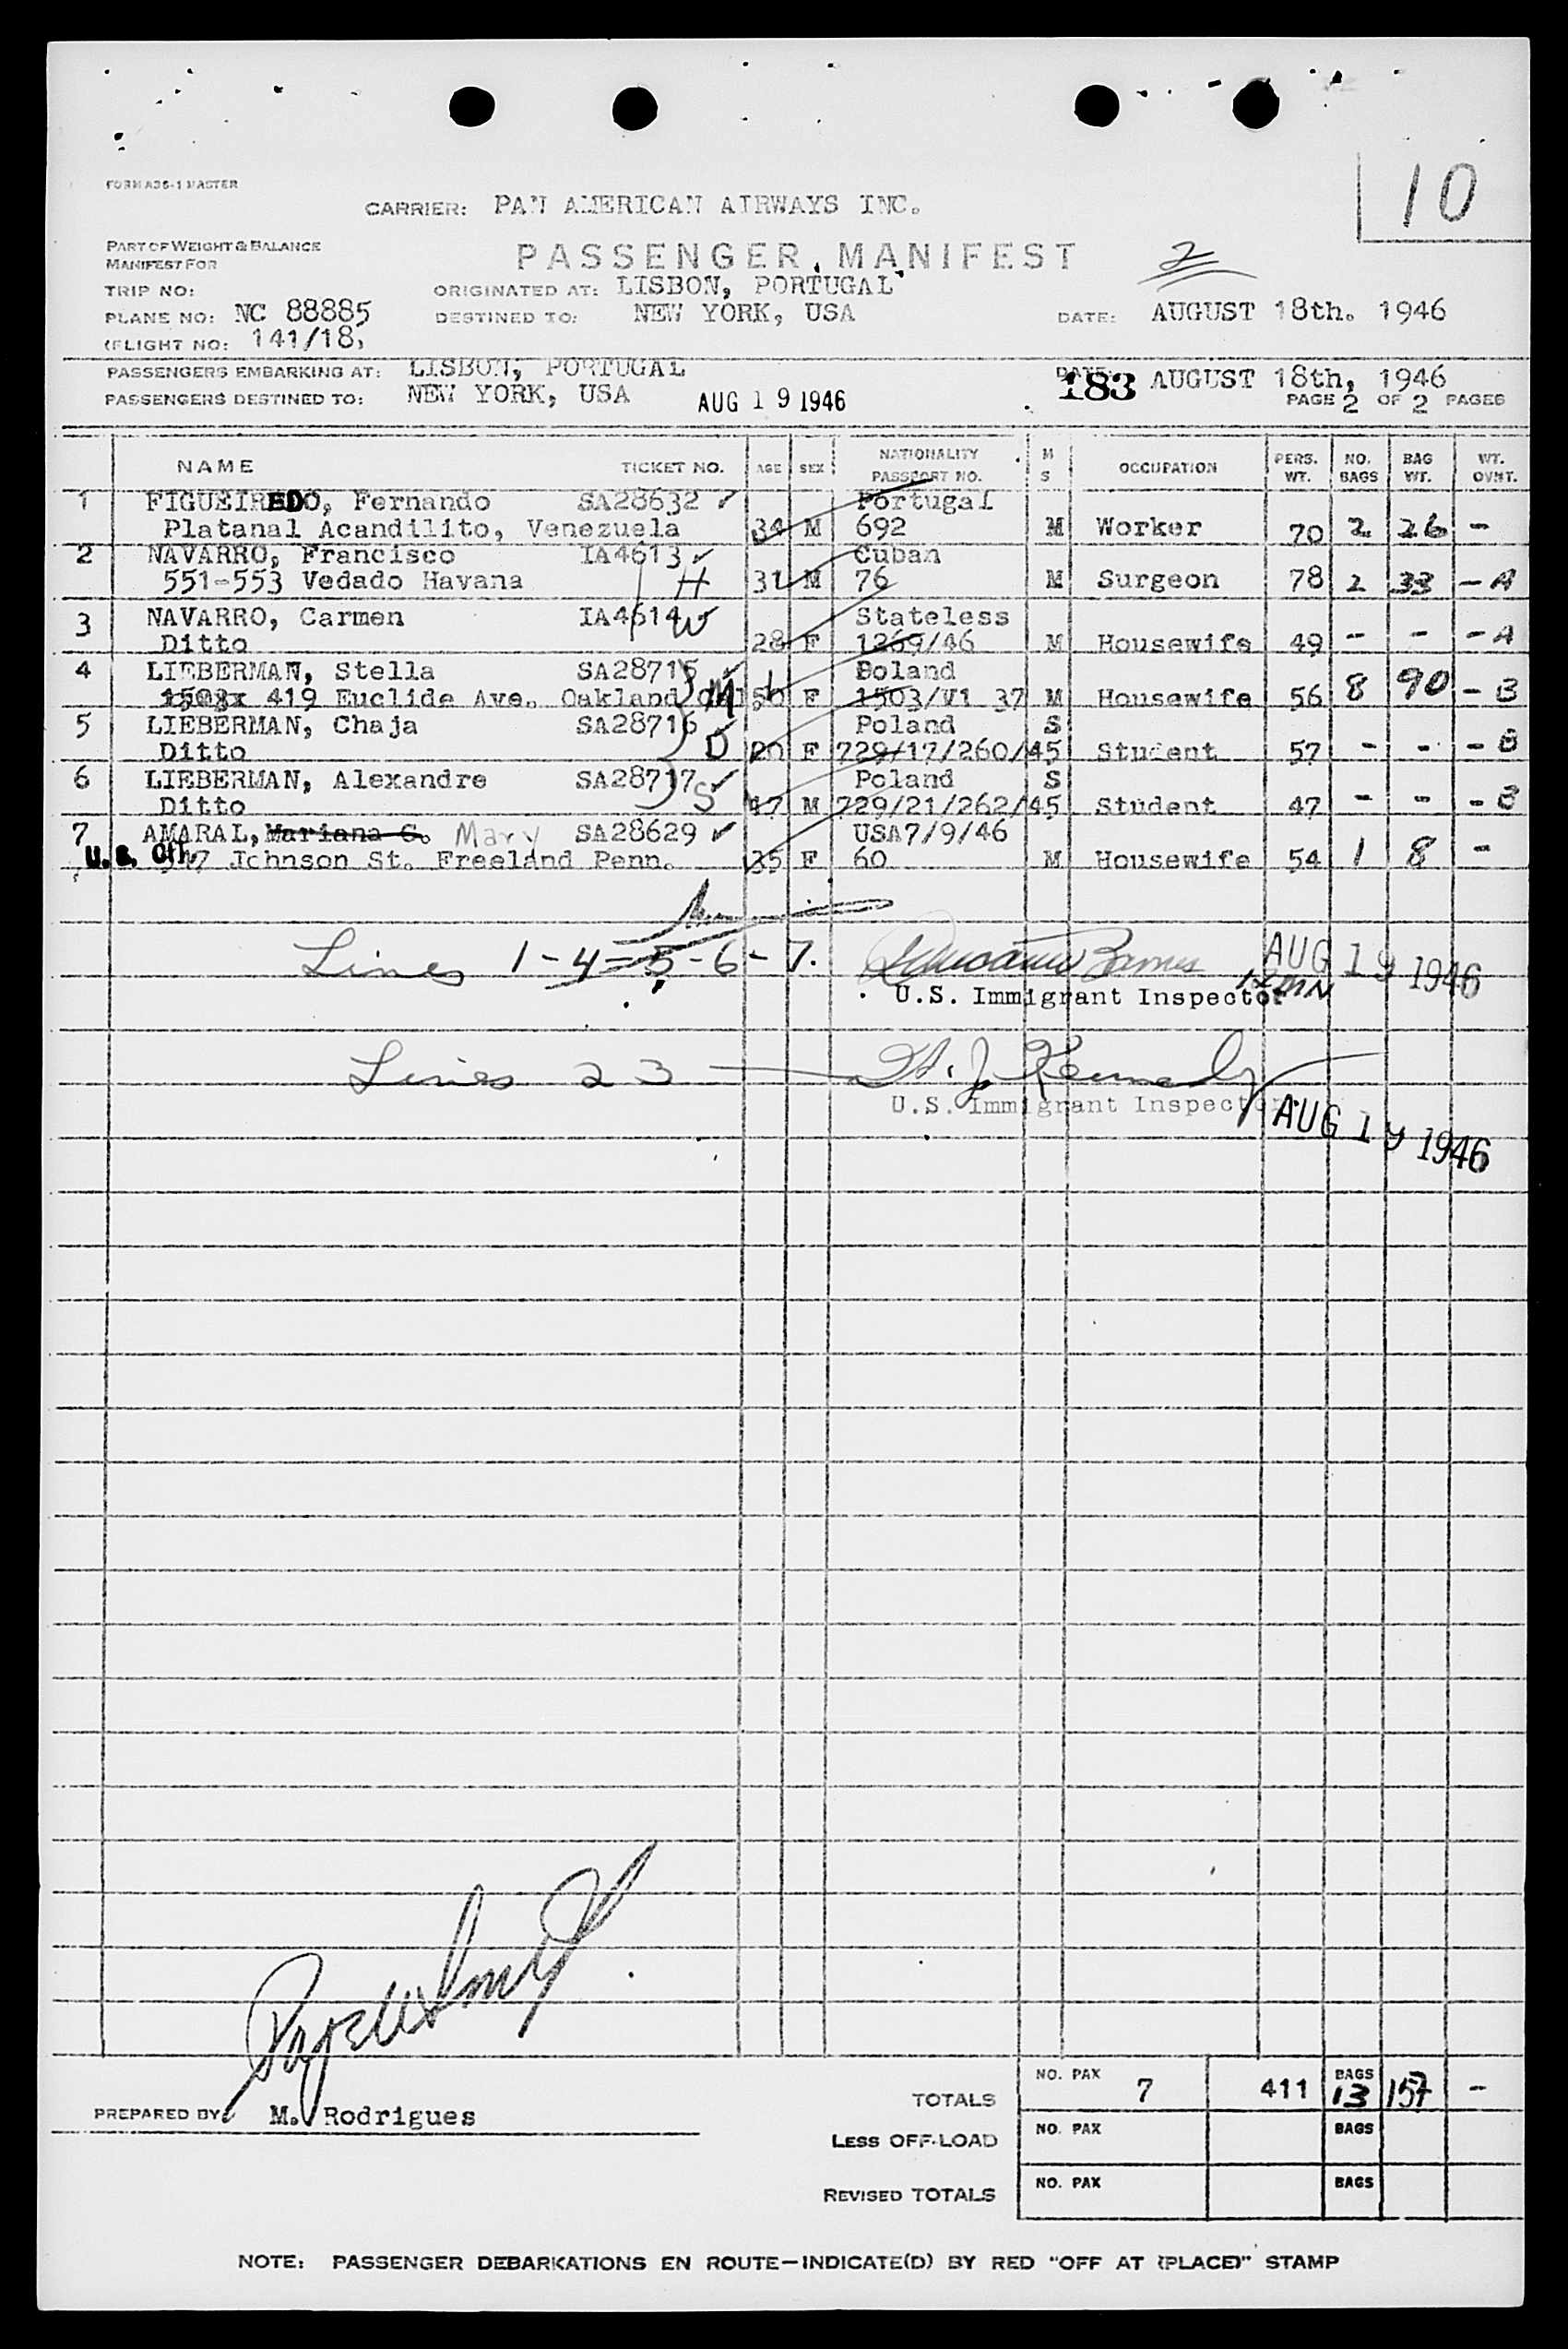 10
FORM A36-1 MASTER
CARRIER: PAN AMERICAN AIRWAYS INC.
PART OF WEIGHT & BALANCE
MANIFEST FOR
PASSENGER MANIFEST
2
TRIP NO:
ORIGINATED AT: LISBON, PORTUGAL
PLANE NO: NC 88885
DESTINED TO: NEW YORK, USA
DATE: AUGUST 18th. 1946
(FLIGHT NO: 141/18,
PASSENGERS EMBARKING AT: LISBON, PORTUGAL
DATE: 183 AUGUST 18th, 1946
PASSENGERS DESTINED TO: NEW YORK, USA
AUG 19 1946
PAGE 2 OF 2 PAGES
NAME TICKET NO. AGE SEX NATIONALITY PASSPORT NO. M S OCCUPATION PERS. WT. NO. BAGS BAG WT. WT. OVHT.
1 FIGUEIREDO, Fernando SA28632 Portugal
Platanal Acandilito, Venezuela 34 M 692 M Worker 70 2 26 -
2 NAVARRO, Francisco IA4613 Cuban
551-553 Vedado Havana H 31 M 76 M Surgeon 78 2 33 - A
3 NAVARRO, Carmen IA4614 W Stateless
Ditto 28 F 1269/46 M Housewife 49 - - - A
4 LIEBERMAN, Stella SA28715 Poland
419 Euclide Ave. Oakland M 50 F 1503/VI 37 M Housewife 56 8 90 - B
5 LIEBERMAN, Chaja SA28716 Poland S
Ditto D 20 F 729/17/260/45 Student 57 - - - B
6 LIEBERMAN, Alexandre SA28717 Poland S
Ditto S 17 M 729/21/262/45 Student 47 - - - B
7 AMARAL, Mariana C. Mary SA28629 USA 7/9/46
Johnson St. Freeland Penn. 35 F 60 M Housewife 54 1 8 -
Lines 1-4-5-6-7. Barnes AUG 19 1946
U.S. Immigrant Inspector
Lines 2 3 H. J. Kennedy
U.S. Immigrant Inspector
AUG 19 1946
TOTALS NO. PAX 7 411 BAGS 13 157 -
PREPARED BY: M. Rodrigues
LESS OFF-LOAD NO. PAX BAGS
REVISED TOTALS NO. PAX BAGS
NOTE: PASSENGER DEBARKATIONS EN ROUTE—INDICATE(D) BY RED "OFF AT (PLACE)" STAMP